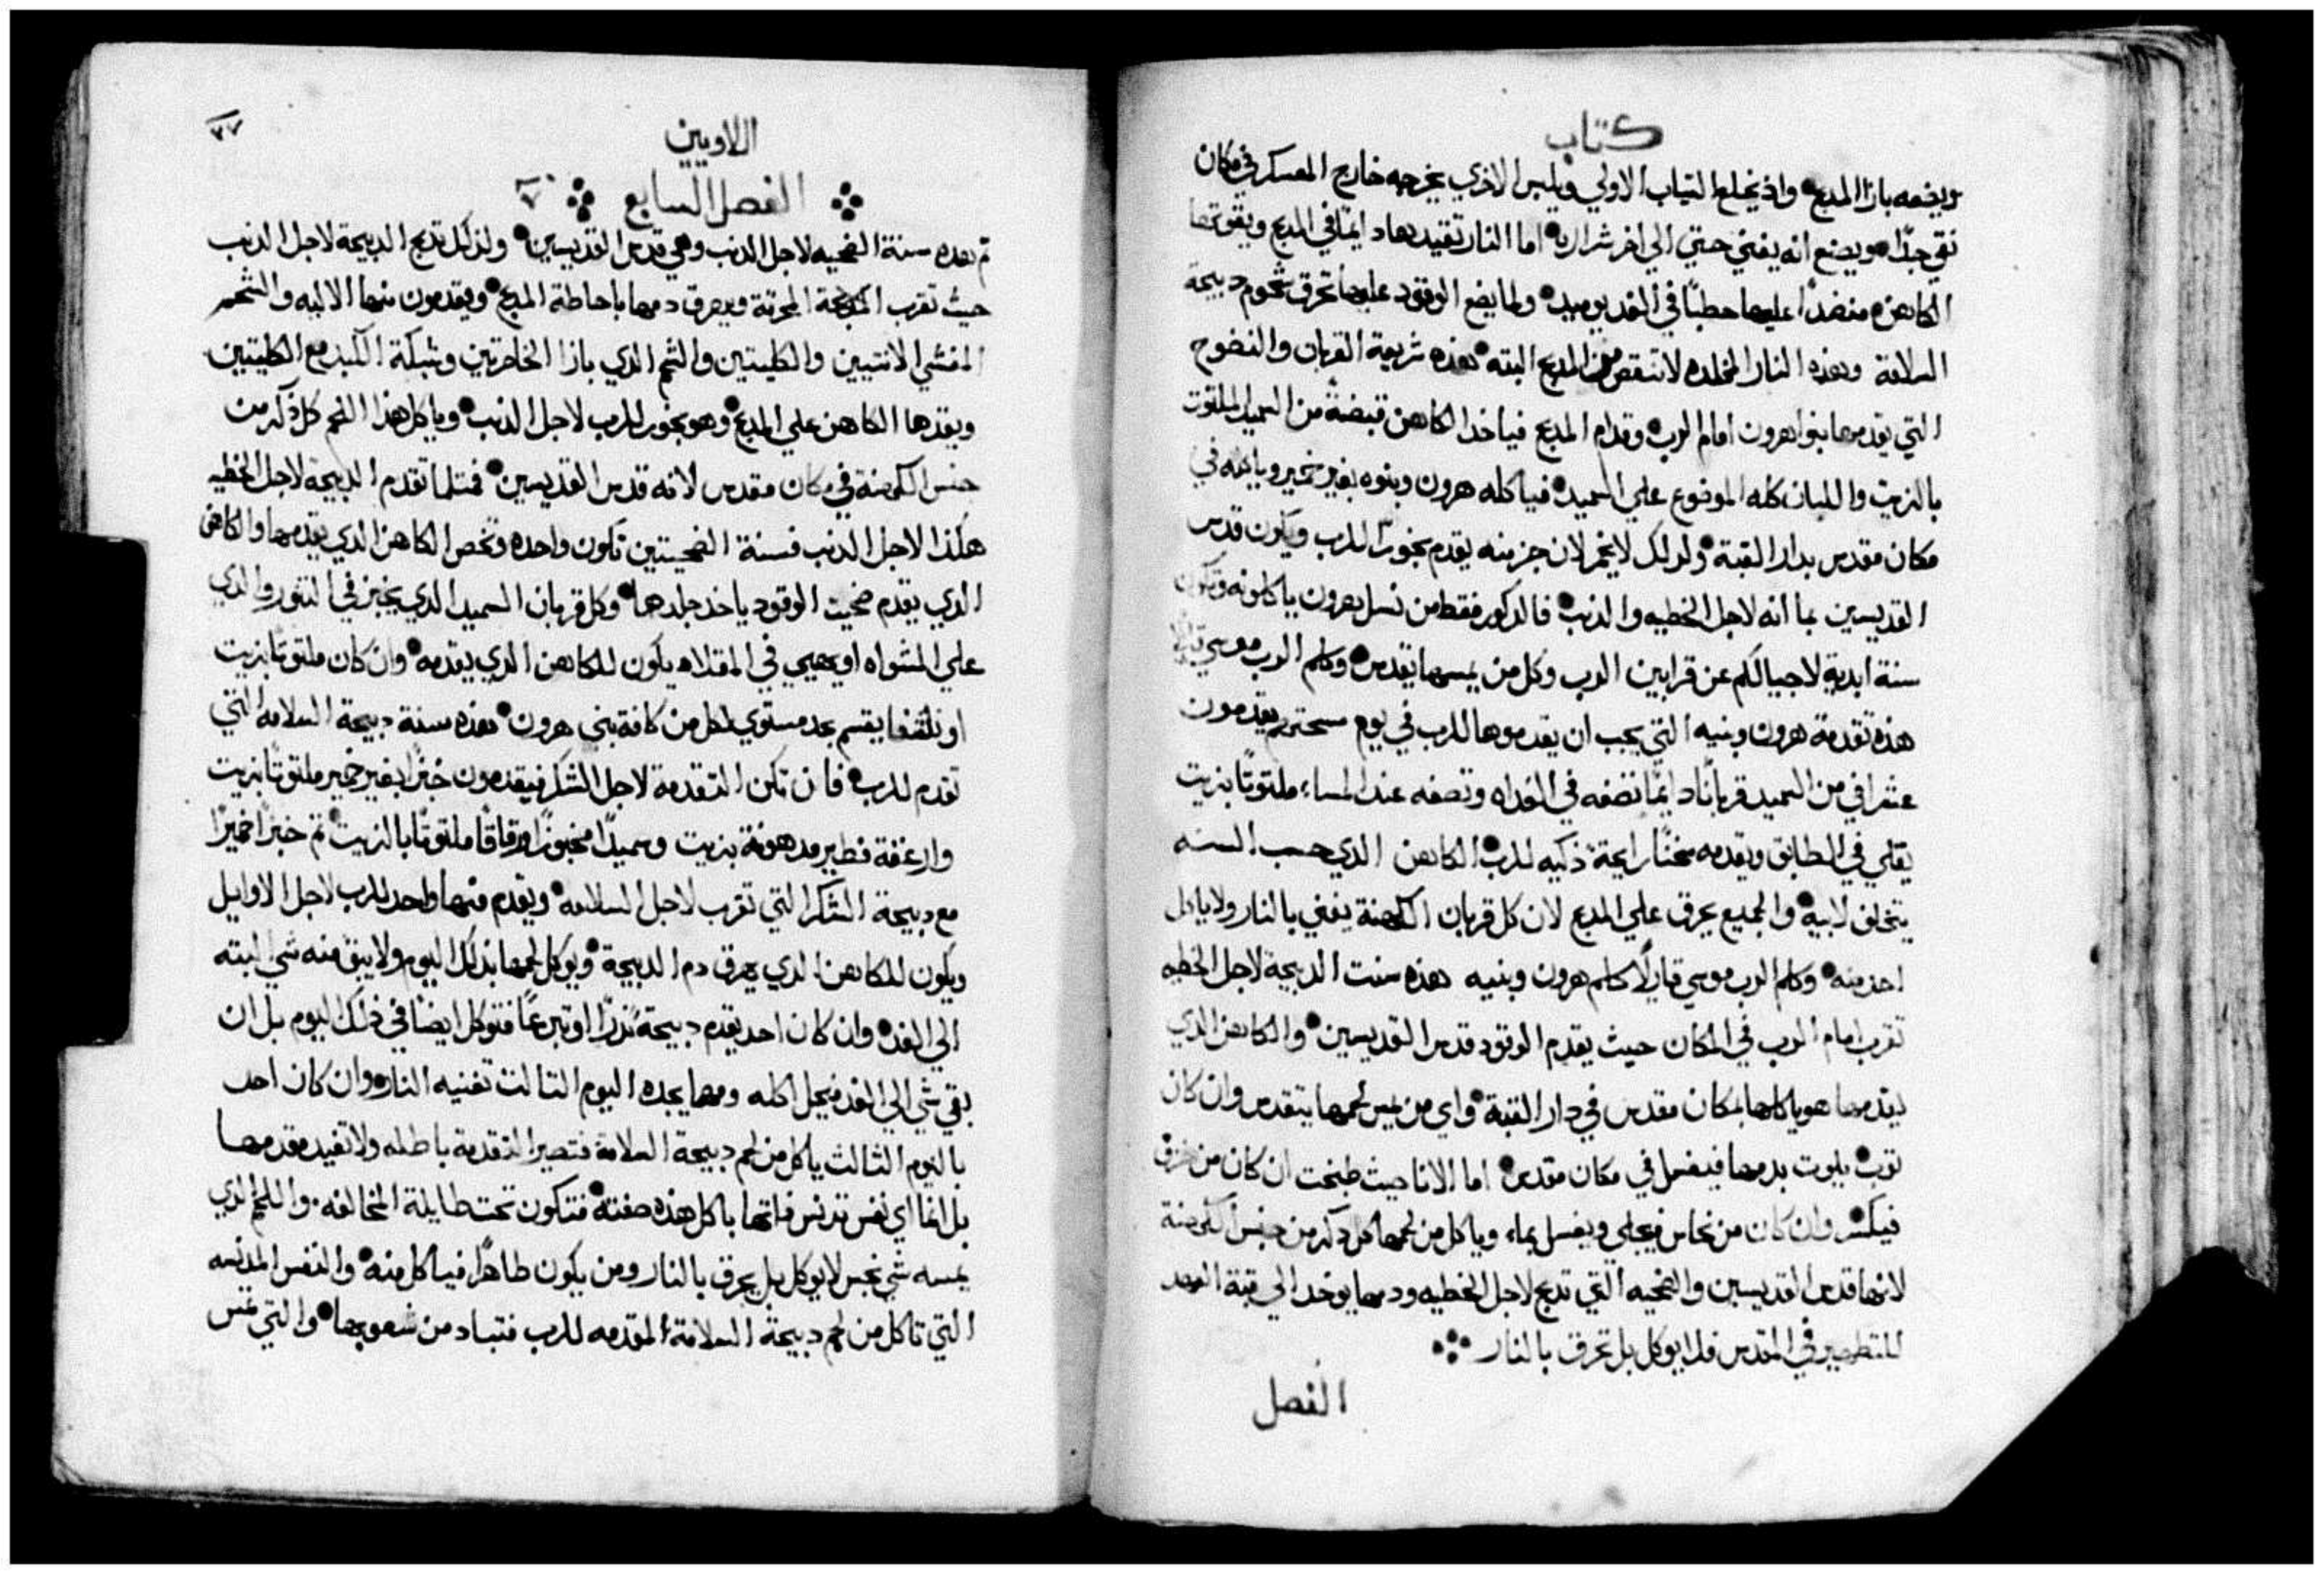 كتاب
ويضعه بازا المدبح واذ يخلع التياب الاولي ويلبس الاخري يخرجه خارج المعسكر في مكان
نقي جدًا ويصنع انه يفني حتي الي اخر شراره اما النار تقيد هاد ايمًا في المدبح ويقوتها
الكاهن منضدًا عليها حطبًا في الغد يوميد ولما يضع الوقود عليها تحرق شحوم دبيحة
السلامة وهذه النار المخلده لا تنقص من المدبح البته هذه شريعة القربان والنضوح
التي يقدمها بنوا هرون امام الرب وقدام المدبح فياخد الكاهن قبضةً من السميد الملتوت
بالزيت واللبان كله الموضوع علي السميد فياكله هرون وبنوه بغير خمير وياكله في
مكان مقدس بدار القبة ولدلك لا يخمر لان جز منه يقدم بخورًا للرب ويكون قدس
القديسين بما انه لاجل الخطيه والدنب فالدكور فقط من نسل هرون ياكلونه وتكون
سنة ابدية لاجيالكم عن قرابين الرب وكل من يمسها يتقدس وكلم الرب موسي قايلًا
هذه تقدمة هرون وبنيه التي يجب ان يقدموها للرب في يوم مسحتهم يقدمون
عشر افي من السميد قربانًا دايمًا نصفه في الغداه ونصفه عند المساء ملتوتًا بزيت
يقلي في الطابق ويقدمه سخنًا رايحة ذكيه للرب الكاهن الدي حسب السنه
يتخلف لابيه والجميع يحرق علي المدبح لان كل قربان الكهنة يفني بالنار ولا ياكل
احد منه وكلم الرب موسي قايلًا كلم هرون وبنيه هذه سنت الدبيحة لاجل الخطيه
تقرب امام الرب في المكان حيث يقدم الوقود قدس القديسين والكاهن الدي
يقدمها هو ياكلها بمكان مقدس في دار القبة واي من يمس لحمها يتقدس وان كان
توب يلوت بدمها فيغسل في مكان مقدس اما الانا حيث طبخت ان كان من خزف
فيكسر وان كان من نحاس فيجلي ويغسل بماء وياكل من لحمها كل دكر من جنس الكهنة
لانها قدس القديسين والضحيه التي تدبح لاجل الخطيه ودمها يوخد الي قبة العهد
للتطهير في المقدس فلا يوكل بل تحرق بالنار
الفصل
٣٧
اللاويين
الفصل السابع ٧
تم هده سنة الضحيه لاجل الدنب وهي قدس القديسين ولذلك تدبح الدبيحة لاجل الدنب
حيث تقرب الدبيحة المحرقة ويهرق دمها باحاطة المدبح ويقدمون منها الاليه والشحم
المغشي الانتيين والكليتين والشحم الدي بازا الخاصرتين وشبكة الكبد مع الكليتين
ويقدها الكاهن علي المدبح وهو بخور للرب لاجل الدنب وياكل هذا اللحم كل ذكر من
جنس الكهنة في مكان مقدس لانه قدس القديسين فمتلما تقدم الدبيحة لاجل الخطيه
هكذا لاجل الدنب فسنة الضحيتين تكون واحده وتخص الكاهن الدي يقدمها والكاهن
الدي يقدم ضحيت الوقود ياخد جلدها وكل قربان السميد الدي يخبز في التنور والدي
علي المشواه او يهيي في المقلاه يكون للكاهن الدي يقدمه وان كان ملتوتًا بزيت
او ناشفا يقسم بحد مستوي لكل من كافة بني هرون هذه سنة دبيحة السلامه التي
تقدم للرب فان تكن التقدمة لاجل الشكر فيقدمون خبزًا بغير خمير ملتوتًا بزيت
وارغفة فطير مدهونة بزيت وسميدًا مخبوزًا ورقاقًا ملتوتًا بالزيت تم خبزًا خميرًا
مع دبيحة الشكر التي تقرب لاجل السلامه ويقدم منها واحد للرب لاجل الاوايل
ويكون للكاهن الدي يهرق دم الدبيحة ويوكل لحمها بذلك اليوم ولا يبق منه شي البته
الي الغد وان كان احد يقدم دبيحة نذرًا او تبرعًا فتوكل ايضا في ذلك اليوم بل ان
بقي شي الي الغد فيحل اكله ومهما يجده اليوم التالت تفنيه النار وان كان احد
باليوم الثالث ياكل من لحم دبيحة السلامة فتصير التقدمة باطله ولا تفيد مقدمها
بل انما اي نفس تدنس فاتها باكل هذه صفته فتكون تحت طايلة المخالفه واللحم الدي
يمسه شي نجس لا يوكل بل يحرق بالنار ومن يكون طاهرًا فياكل منه والنفس المدنسه
التي تاكل من لحم دبيحة السلامة المقدمه للرب فتباد من شعوبها والتي تمس